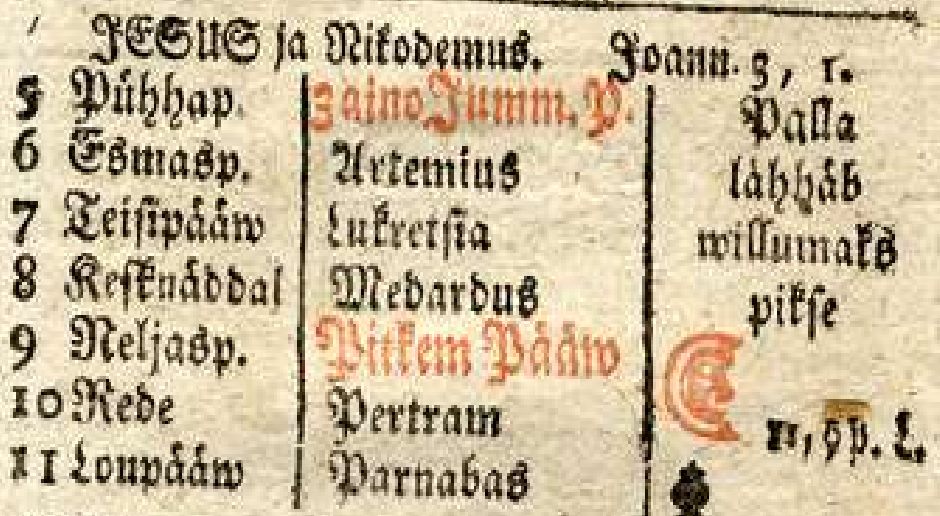 JESUS ja Nikodemus. Joann. 3, 1.
5 Pühhap. 3 aino Jumm. P. Palla
6 Esmasp. Artemius lähhäb
7 Teisipääw Lukretsia willumaks
8 Kesknäddal Medardus pikse
9 Neljasp. Pitkem Pääw
10 Rede Pertram 11, 9 p. L.
11 Loupääw Parnabas